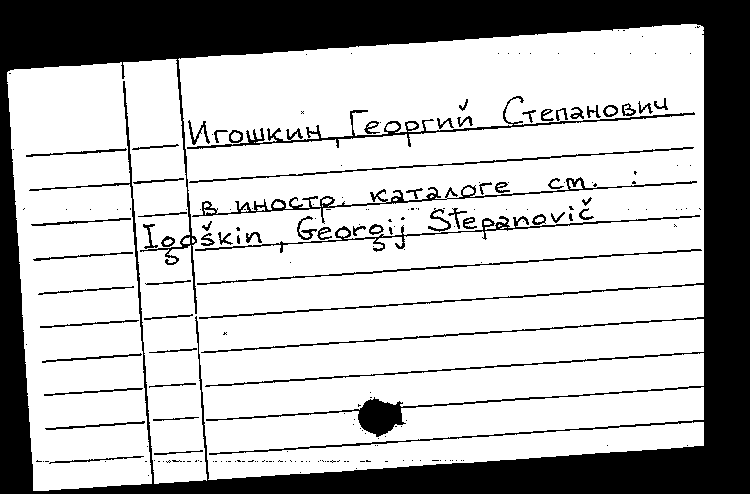 Игошкин, Георгий Степанович
в иностр. каталоге см. :
Igoškin, Georgij Stepanovič